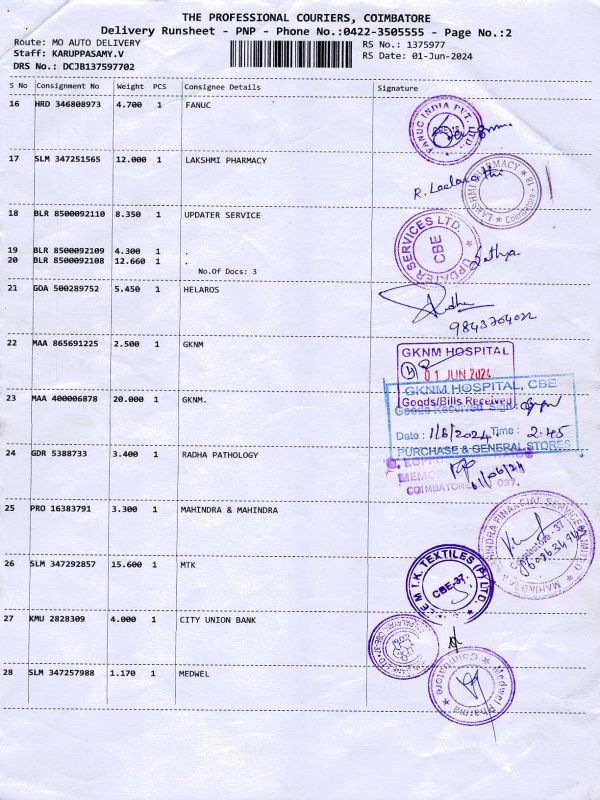 THE PROFESSIONAL COURIERS, COIMBATORE
Delivery Runsheet - PNP - Phone No.:0422-3505555 - Page No.:2
Route: MO AUTO DELIVERY
RS No.: 1375977
Staff: KARUPPASAMY.V
RS Date: 01-Jun-2024
DRS No.: DCJB137597702
S No Consignment No Weight PCS Consignee Details Signature
16 HRD 346808973 4.700 1 FANUC
FANUC INDIA PVT. LTD.
17 SLM 347251565 12.000 1 LAKSHMI PHARMACY
LAKSHMI PHARMACY
Coimbatore - 18
R. Leelavathi
18 BLR 8500092110 8.350 1 UPDATER SERVICE
UPDATER SERVICES LTD.
CBE
Sathya
19 BLR 8500092109 4.300 1 .
20 BLR 8500092108 12.660 1 .
No.Of Docs: 3
21 GDA 500289752 5.450 1 HELAROS
9843704022
22 MAA 865691225 2.500 1 GKNM
GKNM HOSPITAL
01 JUN 2024
Goods/Bills Received
23 MAA 400006878 20.000 1 GKNM.
GKNM HOSPITAL, CBE
Goods Received Sign:
Date: 1/6/2024 Time: 2.45
PURCHASE & GENERAL STORES
24 GDR 5388733 3.400 1 RADHA PATHOLOGY
MEMO
COIMBATORE 037.
01/06/24
25 PRO 16383791 3.300 1 MAHINDRA & MAHINDRA
MAHINDRA FINANCIAL SERVICES LIMITED
Coimbatore-37
26 SLM 347292857 15.600 1 MTK
TEXTILES (P) LTD.
CBE-37.
27 KMU 2828309 4.000 1 CITY UNION BANK
28 SLM 347257988 1.170 1 MEDWEL
Medwel Pharma
Coimbatore